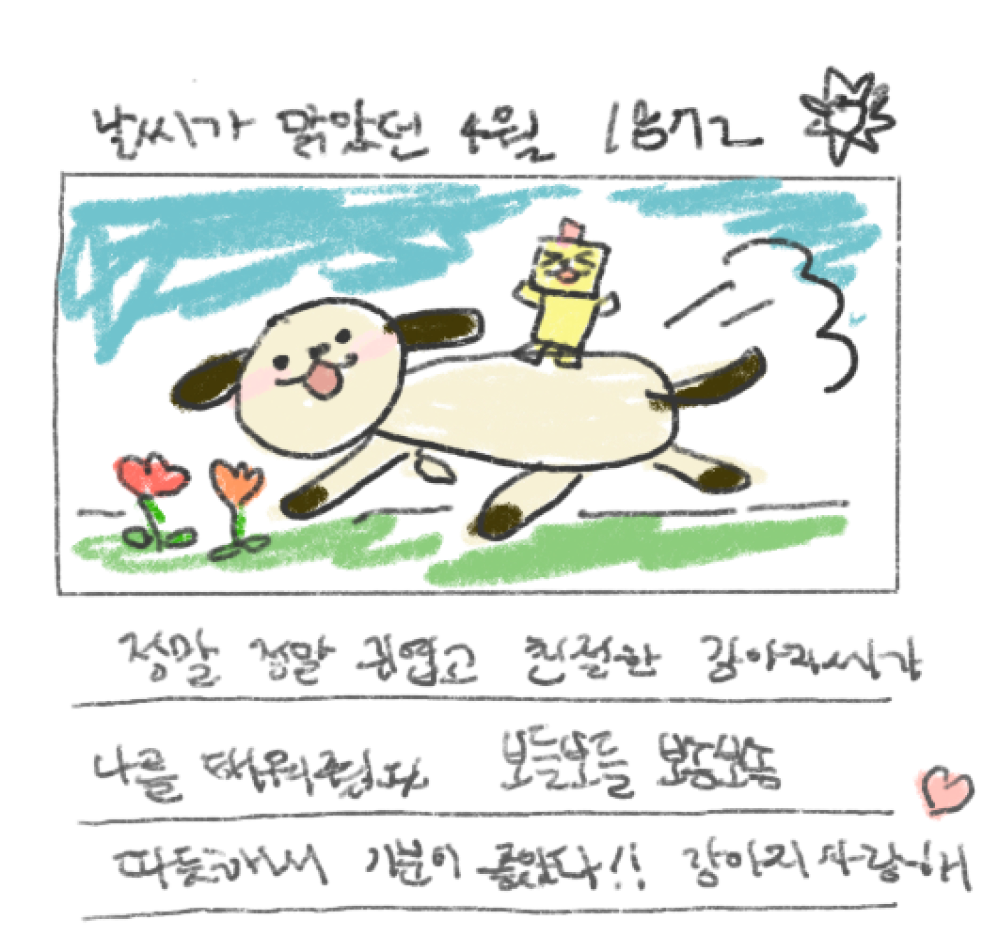 날씨가 맑았던 4월
정말 정말 귀엽고 친절한 강아지씨가
나를 태워줬다 보들보들 뽀송뽀송
따뜻해서 기분이 좋았다!! 강아지 사랑해